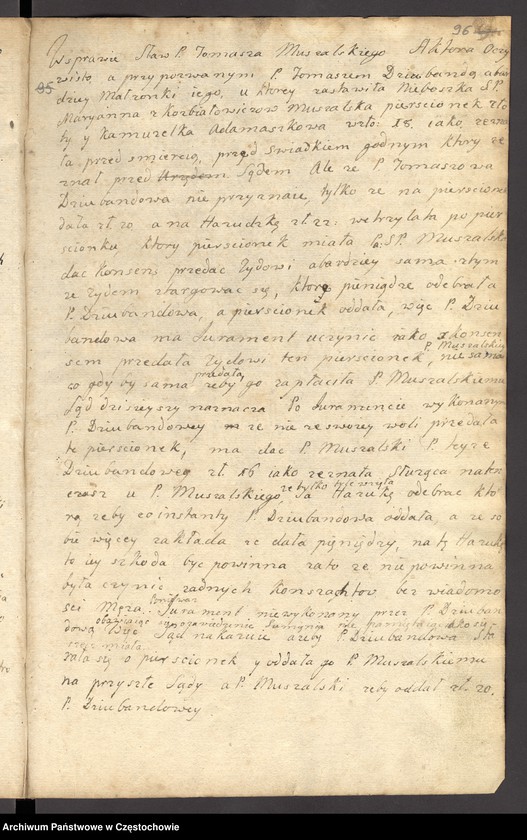 96
95
W sprawie Sław. P. Tomasza Muszalskiego Aktora Oczy
wisto, a przypozwanym P. Tomaszem Dziubandą, a bar
dziey Małżonki iego, u ktorey zastawiła Nieboszka SP.
Maryanna z Korbiałowiczow Muszalska pierscionek zło
ty y Kamizelka Adamaszkowa wzło: 18. iako zezna
ła przed smiercią, przed swiadkiem godnym ktory ze
znał przed Sądem Ale ze P. Tomaszowa
Dziubandowa nie przyznaie, tylko ze na pierscione
dała zł. 20, a na Harudzkę zł. 22: we trzy lata po pier
scionku, ktory pierscionek miała SP. Muszalska
dac Konsens przedac Zydowi a bardziey sama z tym
ze Zydem ztargować się, ktory pieniądze odebrała
P. Dziubandowa, a pierscionek oddała, więc P. Dziu
bandowa ma Jurament uczynic iako z konsen
sem przedała Zydowi ten pierscionek, P. Muszalskiey nie sama
co gdy by sama przedała, zeby go zapłaciła P. Muszalskiemu
Sąd dzisieyszy naznacza Po Juramencie wykonanym
P. Dziubandowey ze nie ze swoiey woli przedała
te pierscionek, ma dac P. Muszalski P.
Dziubandowey zł. 16 iako zeznała Służąca naten
czasz u P. Muszalskiego, ze tylko tyc wzyła Ta Harukę odebrac kto
rą zeby co instanty P. Dziubandowa oddała, a ze so
bie więcey zakłada ze dała pięniędzy, na tę Harukę
to iey szkoda byc powinna zato ze nie powinna
była czynic zadnych Konszachtow bez wiadomo
sci Męza. Ponieważ Jurament niewykonany przez P. Dziuban
dową obawiaiąc się zawiedzenia Sumnienia nie pamiętaiąc iako
rzecz miała Więc Sąd nakazuie azeby P. Dziubandowa sta
rała się o pierscionek y oddała go P. Muszalskiemu
na przyszłe Sądy a P. Muszalski zeby oddał zł. 20.
P. Dziubandowey
Archiwum Państwowe w Częstochowie